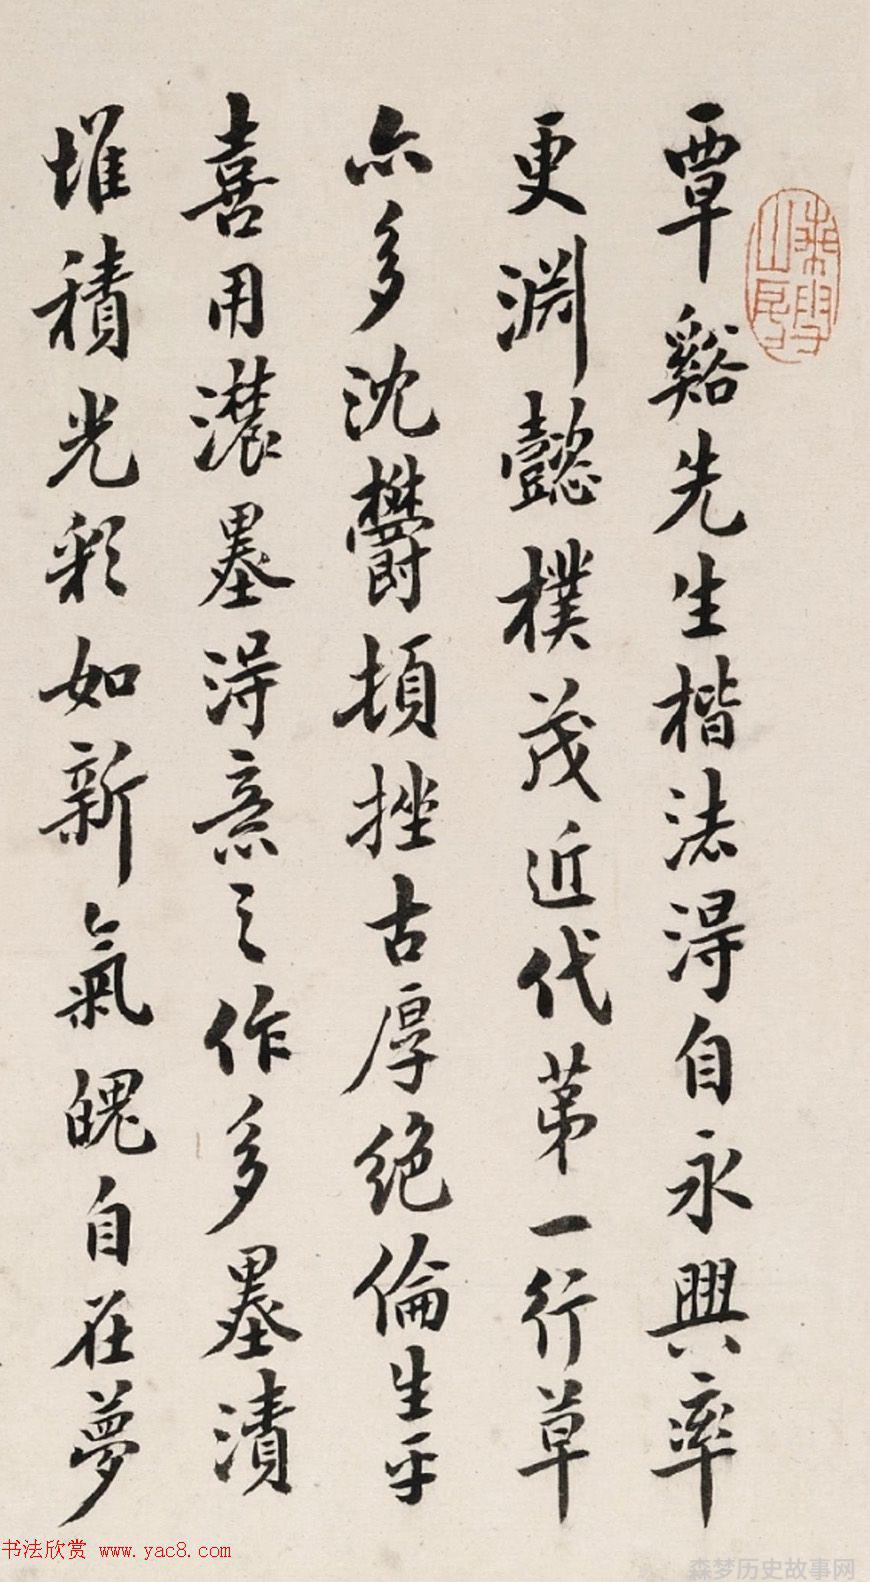 覃谿先生楷法得自永興率
更淵懿樸茂近代第一行草
亦多沈鬱頓挫古厚絕倫生平
喜用濃墨得意之作多墨漬
堆積光彩如新氣魄自在夢
书法欣赏 www.yac8.com
森梦历史故事网